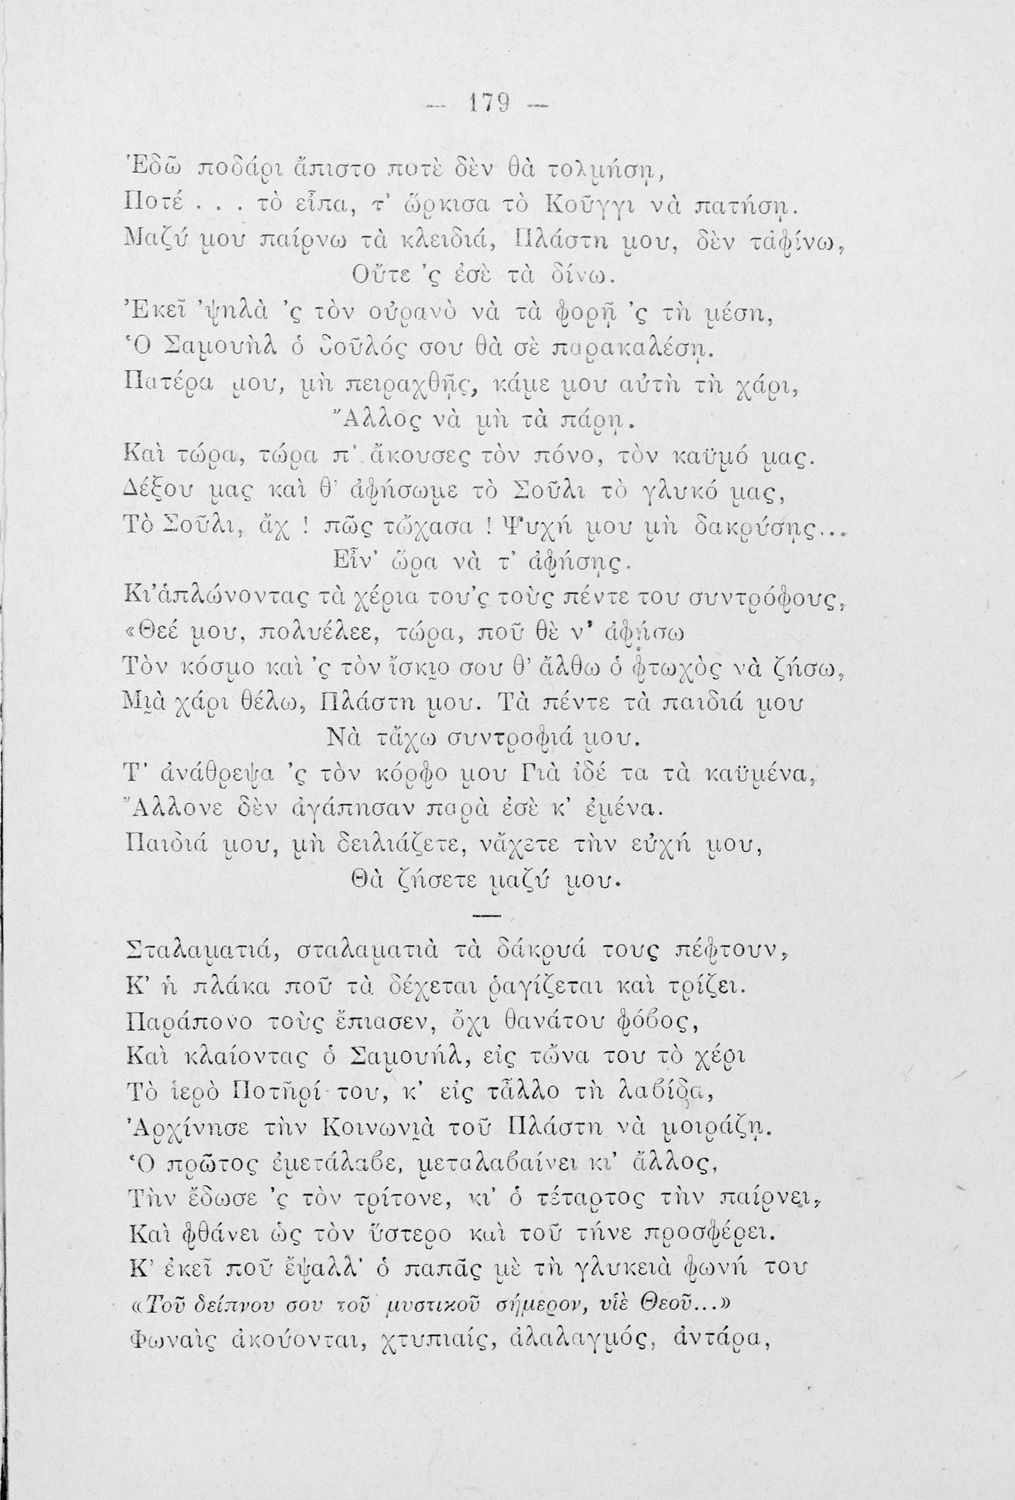 — 179 —
Ἐδῶ ποδάρι ἄπιστο ποτὲ δὲν θὰ τολμήσῃ,
Ποτέ . . . τὸ εἶπα, τ' ὥρκισα τὸ Κοῦγγι νὰ πατήσῃ.
Μαζύ μου παίρνω τὰ κλειδιά, Πλάστη μου, δὲν τἀφίνω,
Οὔτε 'ς ἐσὲ τὰ δίνω.
Ἐκεῖ 'ψηλὰ 'ς τὸν οὐρανὸ νὰ τὰ φορῇ 'ς τὴ μέση,
Ὁ Σαμουὴλ ὁ δοῦλός σου θὰ σὲ παρακαλέσῃ.
Πατέρα μου, μὴ πειραχθῇς, κάμε μου αὐτὴ τὴ χάρι,
Ἄλλος νὰ μὴ τὰ πάρῃ.
Καὶ τώρα, τώρα π' ἄκουσες τὸν πόνο, τὸν καϋμό μας.
Δέξου μας καὶ θ' ἀφήσωμε τὸ Σοῦλι τὸ γλυκό μας,
Τὸ Σοῦλι, ἄχ ! πῶς τὤχασα ! Ψυχή μου μὴ δακρύσῃς...
Εἶν' ὥρα νὰ τ' ἀφήσῃς.
Κι'ἁπλώνοντας τὰ χέρια του'ς τοὺς πέντε του συντρόφους,
«Θεέ μου, πολυέλεε, τώρα, ποῦ θὲ ν' ἀφήσω
Τὸν κόσμο καὶ 'ς τὸν ἴσκι̯ο σου θ' ἄλθω ὁ φτωχὸς νὰ ζήσω,
Μι̯ὰ χάρι θέλω, Πλάστη μου. Τὰ πέντε τὰ παιδιά μου
Νὰ τἄχω συντροφιά μου.
Τ' ἀνάθρεψα 'ς τὸν κόρφο μου Γιὰ ἰδέ τα τὰ καϋμένα,
Ἄλλονε δὲν ἀγάπησαν παρὰ ἐσὲ κ' ἐμένα.
Παιδιά μου, μὴ δειλιάζετε, νἄχετε τὴν εὐχή μου,
Θὰ ζήσετε μαζύ μου.
Σταλαματιά, σταλαματιὰ τὰ δάκρυά τους πέφτουν,
Κ' ἡ πλάκα ποῦ τὰ δέχεται ῥαγίζεται καὶ τρίζει.
Παράπονο τοὺς ἔπιασεν, ὄχι θανάτου φόβος,
Καὶ κλαίοντας ὁ Σαμουήλ, εἰς τὦνα του τὸ χέρι
Τὸ ἱερὸ Ποτῆρί του, κ' εἰς τἆλλο τὴ λαβίδα,
Ἀρχίνησε τὴν Κοινωνι̯ὰ τοῦ Πλάστη νὰ μοιράζῃ.
Ὁ πρῶτος ἐμετάλαβε, μεταλαβαίνει κι' ἄλλος,
Τὴν ἔδωσε 'ς τὸν τρίτονε, κι' ὁ τέταρτος τὴν παίρνει,
Καὶ φθάνει ὡς τὸν ὕστερο καὶ τοῦ τήνε προσφέρει.
Κ' ἐκεῖ ποῦ ἔψαλλ' ὁ παπᾶς μὲ τὴ γλυκειὰ φωνή του
«Τοῦ δείπνου σου τοῦ μυστικοῦ σήμερον, υἱὲ Θεοῦ...»
Φωναὶς ἀκούονται, χτυπιαίς, ἀλαλαγμός, ἀντάρα,